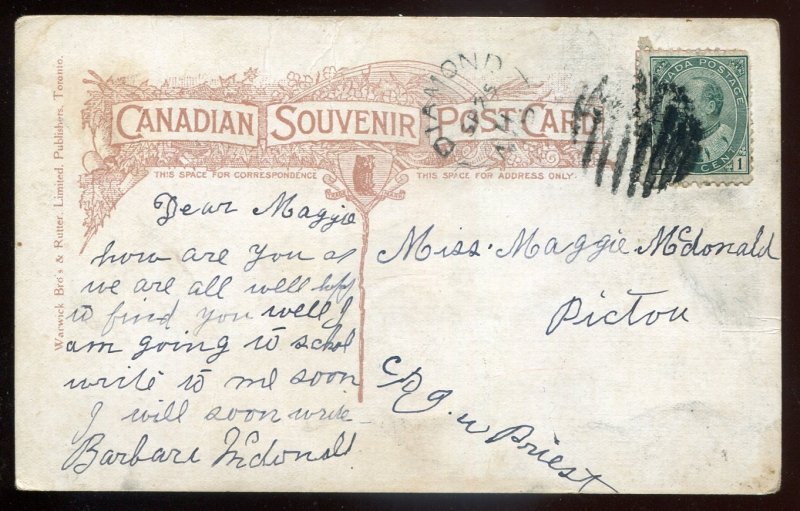 CANADIAN SOUVENIR POST CARD
THIS SPACE FOR CORRESPONDENCE
THIS SPACE FOR ADDRESS ONLY.
Warwick Bro's & Rutter, Limited, Publishers, Toronto.
DIAMOND
CANADA POSTAGE
1 CENT 1
Dear Maggie
how are you
we are all well
to find you well I
am going to schol
write to me soon
I will soon write
Barbara Mcdonald
Miss. Maggie McDonald
Pictou
c/o g. w Priest